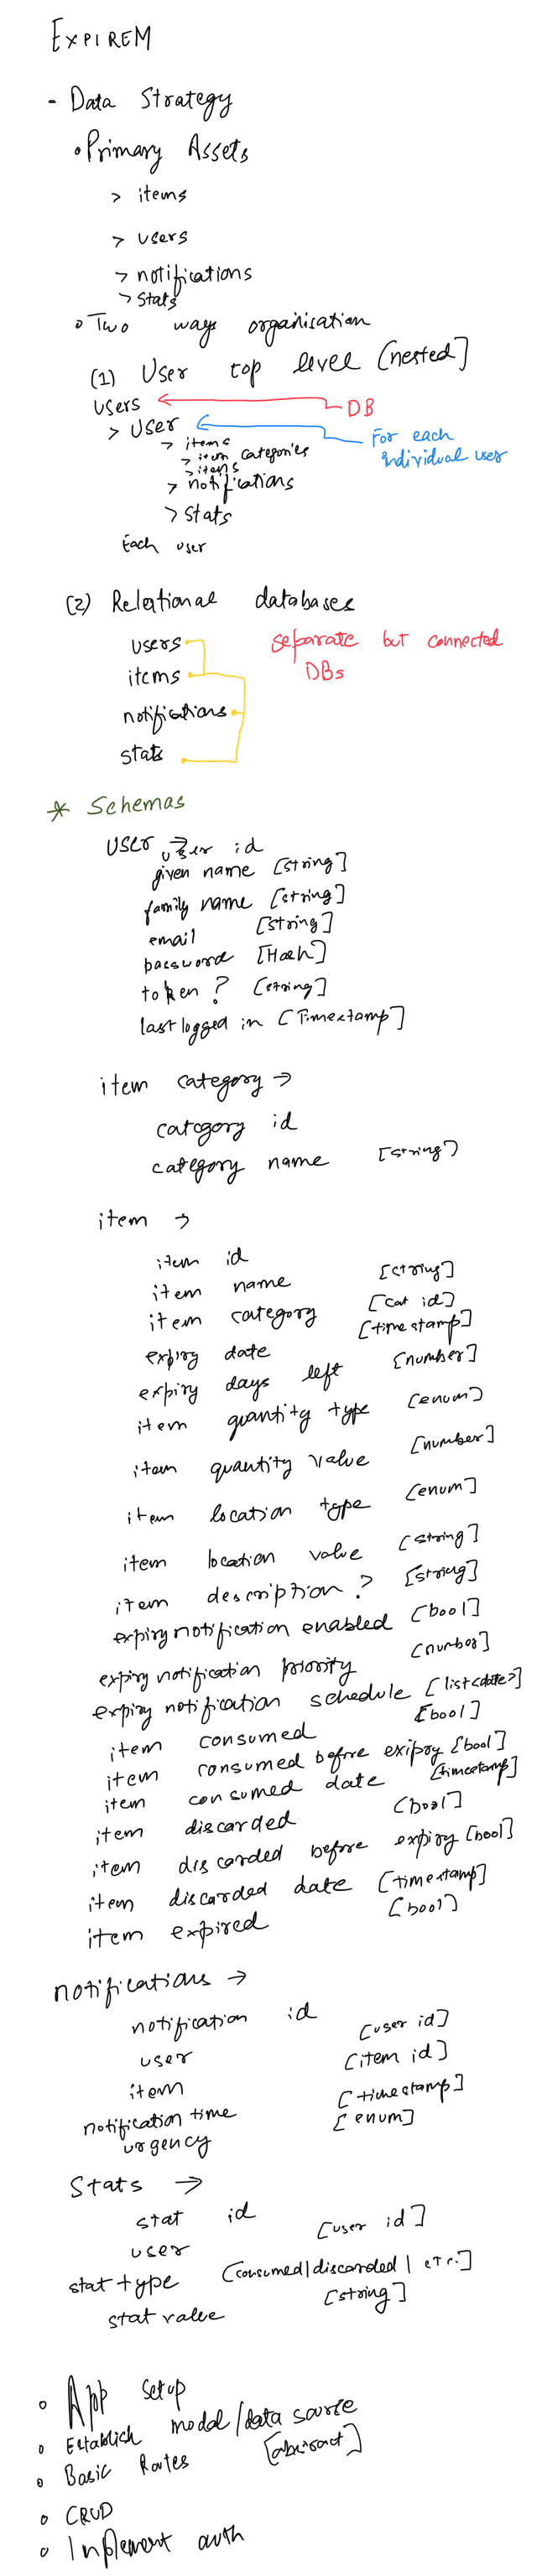 EXPIREM
- Data Strategy
• Primary Assets
> items
> users
> notifications
> stats
• Two ways organisation
(1) User top level [nested]
users
DB
> User
For each individual user
> items
> item categories
> items
> notifications
> stats
Each user
(2) Relational databases
users
separate but connected DBs
items
notifications
stats
* Schemas
User →
user id
given name [string]
family name [string]
email [string]
password [Hash]
token? [string]
last logged in [Timestamp]
item category →
category id
category name [string]
item →
item id
item name [string]
item category [cat id]
expiry date [timestamp]
expiry days left [number]
item quantity type [enum]
item quantity value [number]
item location type [enum]
item location value [string]
item description? [string]
expiry notification enabled [bool]
expiry notification priority [number]
expiry notification schedule [list<date>]
item consumed [bool]
item consumed before exipry [bool]
item consumed date [timestamp]
item discarded [bool]
item discarded before expiry [bool]
item discarded date [timestamp]
item expired [bool]
notifications →
notification id
user [user id]
item [item id]
notification time [timestamp]
urgency [enum]
Stats →
stat id
user [user id]
stat type [consumed|discarded| etc.]
stat value [string]
• App setup
• Establish model/data source
[abstract]
• Basic Routes
• CRUD
• Implement auth